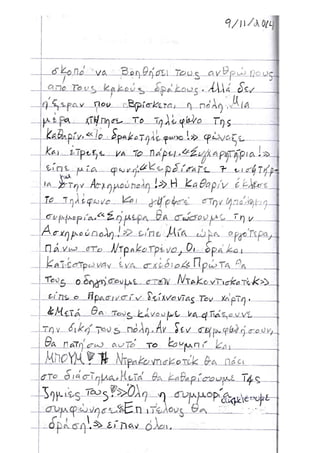 9/11/2014
σκοπό να βοηθήσει τους ανθρώπους
από τους κακούς δράκους. Αλλά δεν
ήξεραν που βρίσκεται η πόλη. Μια
μέρα χτύπησε το τηλέφωνο της
Καθαρίν. «Το δρακοτηλέφωνο!» φώναξε
και έτρεξε να το πάρει. «Συγχαρητήρια!»
είπε μία φωνή. «Κερδίσατε 7 εισητήρ
ια στην Ασημούπολη!» Η Καθαρίν έκλεισε
το τηλέφωνο και στην υπόλοιπη
συμμορία. «Σήμερα θα σώσουμε την
Ασημούπολη!» είπε. Μία ώρα αργότερα,
πάνω στο Ντρακοτρένο, Οι δράκοι
κατέστρωναν ένα σχέδιο. «Πρώτα θα
τους οδηγήσουμε στην Ντρακοντισκοτέκ»
είπε ο Πρασινσίν δείχνοντας τον χάρτη.
«Μετά θα τους κάνουμε να φτιάξουνε
την δική τους πόλη. Αν δεν συμφωνήσουν,
θα πατήσω αυτό το κουμπί και
ΜΠΟΥΜ! Η Ντρακοντισκοτέκ θα πάει
στο διάστημα. Μετά θα καθαρίσουμε τις
ζημιές τους!» Όλη η συμμορία
συμφώνησε. «Επιτέλους θα
δράση!» είπαν όλοι.